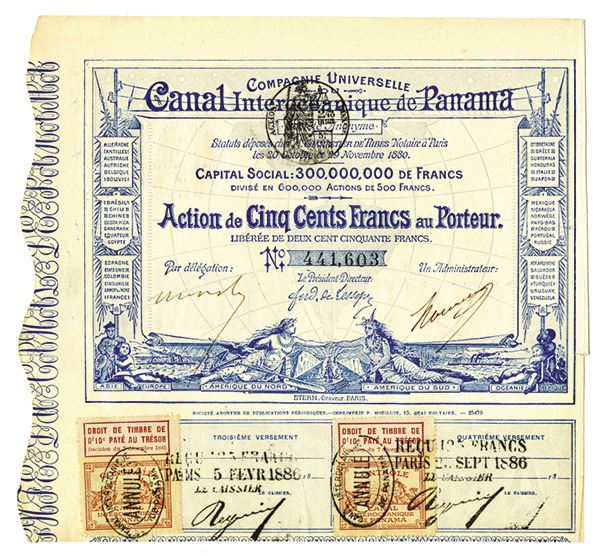 COMPAGNIE UNIVERSELLE
Canal Interocéanique de Panama
Anonyme
Statuts déposés Notaire à Paris
les 20 Octobre Novembre 1880.
CAPITAL SOCIAL: 300,000,000 DE FRANCS
DIVISÉ EN 600,000 ACTIONS DE 500 FRANCS.
Action de Cinq Cents Francs au Porteur.
LIBÉRÉE DE DEUX CENT CINQUANTE FRANCS.
No 441,603
Par délégation:
Le Président-Directeur:
Un Administrateur:
Ferd. de Lesseps
ALLEMAGNE
ANTILLES
AUSTRALIE
AUTRICHE
BELGIQUE
BOLIVIE
BRÉSIL
CHILI
CHINE
COSTA RICA
DANEMARK
EQUATEUR
EGYPTE
ESPAGNE
ETATS-UNIS
DE COLOMBIE
ETATS-UNIS
FRANCE
BRETAGNE
GRÈCE
GUATEMALA
HONDURAS
ITALIE
JAPON
MEXIQUE
NICARAGUA
NORVÈGE
PAYS-BAS
PÉROU
PORTUGAL
RUSSIE
SALVADOR
SUÉDE
TURQUIE
URUGUAY
VENEZUELA
ASIE
EUROPE
AMÉRIQUE DU NORD
AMÉRIQUE DU SUD
OCÉANIE
AFRIQUE
STERN, Graveur, PARIS.
SOCIÉTÉ ANONYME DE PUBLICATIONS PÉRIODIQUES.—IMPRIMERIE P. MOUILLOT, 13, QUAI VOLTAIRE. — 25470
DROIT DE TIMBRE DE
0f10c PAYÉ AU TRÉSOR
TROISIÈME VERSEMENT
PARIS 5 FEVR 1886
LE CAISSIER
LE CAISSIER,
ANNULÉ
DROIT DE TIMBRE DE
0f10c PAYÉ AU TRÉSOR
QUATRIÈME VERSEMENT
REÇU 125 FRANCS
PARIS SEPT 1886
LE CAISSIER
LE CAISSIER,
ANNULÉ
INTEROCÉANIQUE
DE PANAMA